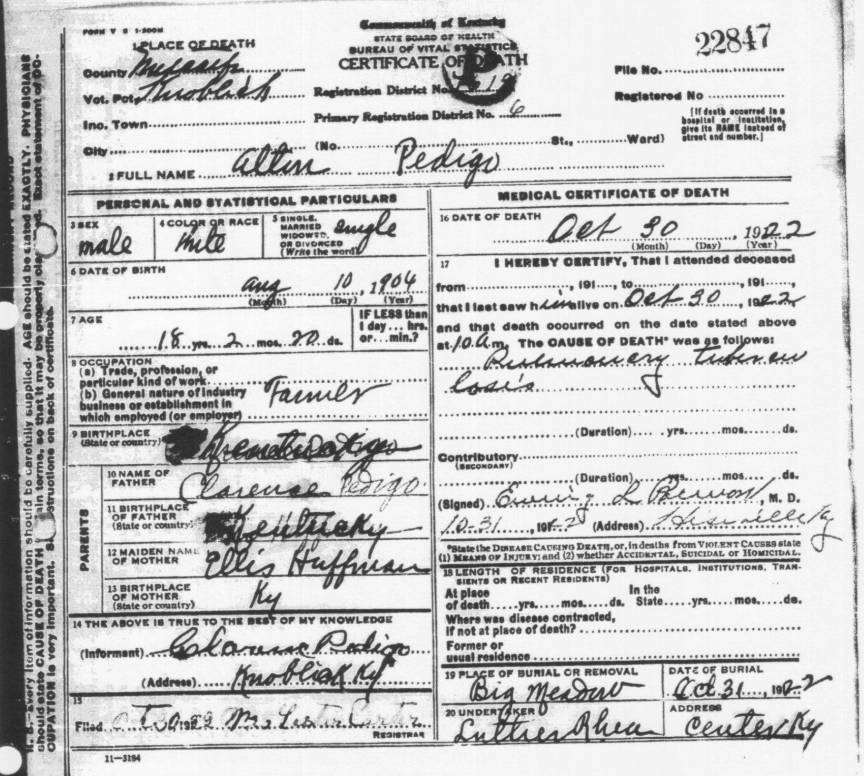 FORM V S 1-500M
Commonwealth of Kentucky
STATE BOARD OF HEALTH
BUREAU OF VITAL STATISTICS
CERTIFICATE OF DEATH
22847
1 PLACE OF DEATH
County
Vot. Pct. Knoblick
Inc. Town
City
Registration District No.
Primary Registration District No. 6
(No. St., Ward)
File No.
Registered No
[If death occurred in a hospital or institution, give its NAME instead of street and number.]
2 FULL NAME Pedigo
PERSONAL AND STATISTICAL PARTICULARS
3 SEX male
4 COLOR OR RACE
5 SINGLE, MARRIED WIDOWED, OR DIVORCED (Write the word) single
6 DATE OF BIRTH
Aug 10, 1904
(Month) (Day) (Year)
7 AGE
18 yrs. 2 mos. 20 ds.
IF LESS than 1 day... hrs. or... min.?
8 OCCUPATION
(a) Trade, profession, or particular kind of work
(b) General nature of industry business or establishment in which employed (or employer) Farmer
9 BIRTHPLACE
(State or country)
PARENTS
10 NAME OF FATHER Clarence Pedigo
11 BIRTHPLACE OF FATHER (State or country) Kentucky
12 MAIDEN NAME OF MOTHER Ellis Huffman
13 BIRTHPLACE OF MOTHER (State or country) Ky
14 THE ABOVE IS TRUE TO THE BEST OF MY KNOWLEDGE
(Informant) Clarence Pedigo
(Address) Knoblick Ky
15
Filed
REGISTRAR
11-3184
MEDICAL CERTIFICATE OF DEATH
16 DATE OF DEATH
Oct 30, 1922
(Month) (Day) (Year)
17 I HEREBY CERTIFY, That I attended deceased
from, 191, to, 191,
that I last saw him alive on Oct 30, 1922
and that death occurred on the date stated above
at 10 a m. The CAUSE OF DEATH* was as follows:
Pulmonary tubercu
losis
(Duration) yrs. mos. ds.
Contributory
(SECONDARY)
(Duration) yrs. mos. ds.
(Signed), M. D.
10-31, 192 (Address) Hiseville Ky
*State the DISEASE CAUSING DEATH, or, in deaths from VIOLENT CAUSES state
(1) MEANS OF INJURY; and (2) whether ACCIDENTAL, SUICIDAL or HOMICIDAL.
18 LENGTH OF RESIDENCE (FOR HOSPITALS, INSTITUTIONS, TRAN-
SIENTS OR RECENT RESIDENTS)
At place of death yrs. mos. ds. In the State yrs. mos. ds.
Where was disease contracted,
if not at place of death?
Former or
usual residence
19 PLACE OF BURIAL OR REMOVAL
Big Meadow
DATE OF BURIAL
Oct 31, 1922
20 UNDERTAKER
Luther Rhea
ADDRESS
Center Ky
N. B.—Every item of information should be carefully supplied. AGE should be stated EXACTLY. PHYSICIANS
should state CAUSE OF DEATH in terms, so that it may be properly Exact statement of OC-
CUPATION is very important. on back of certificate.